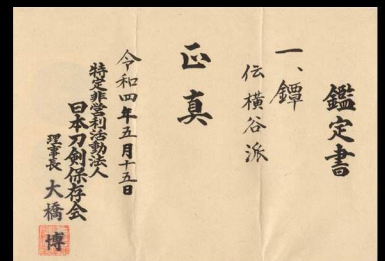 鑑定書
一、鐔
伝横谷派
正真
令和四年五月十五日
特定非営利活動法人
日本刀剣保存会
理事長 大橋博